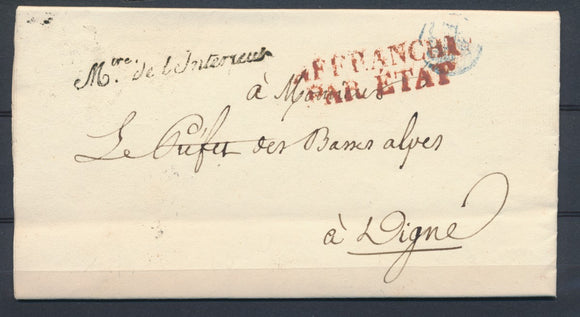 Mre. de l'Interieur
AFFRANCHI
PAR ETAT
à Monsieur
Le Préfet des Basses alpes
à Digne